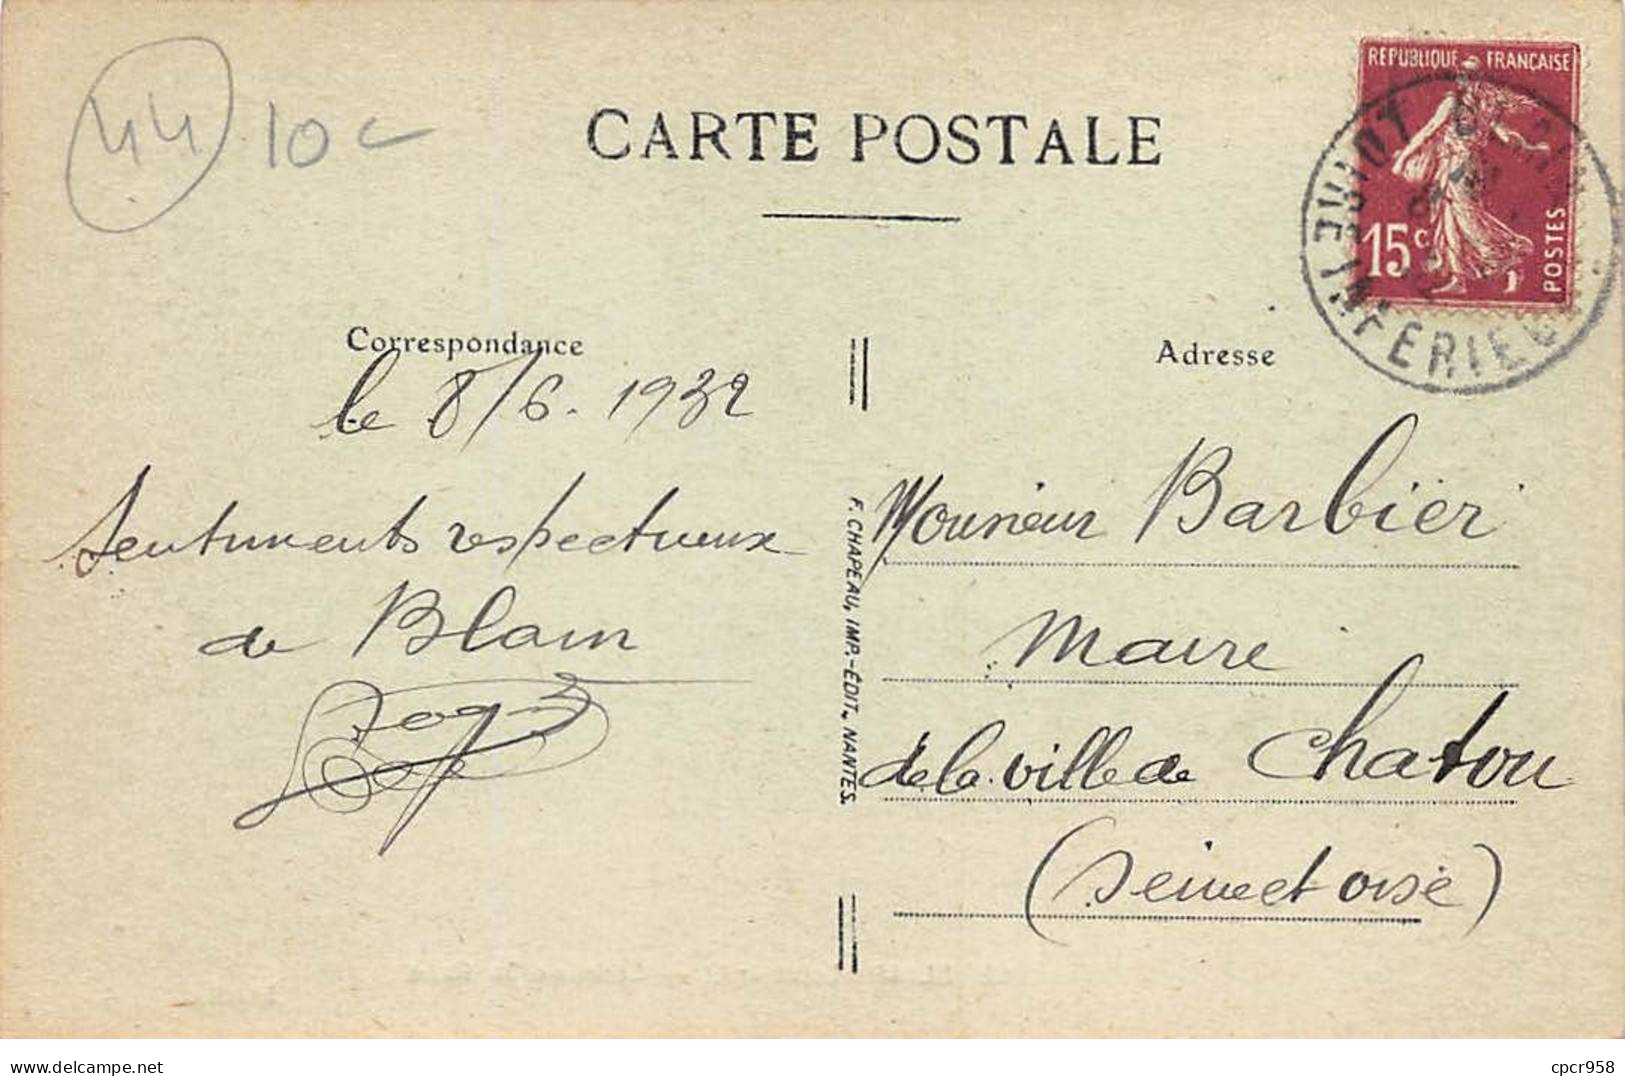 44 10c
CARTE POSTALE
REPUBLIQUE FRANÇAISE
15c
POSTES
LOIRE INFERIEURE
Correspondance
le 8/6. 1932
Sentiments respectueux
de Blain
F. CHAPEAU, IMP.-ÉDIT., NANTES.
Adresse
Monsieur Barbier
Maire
de la ville de Chatou
(Seine et Oise)
delcampe.net
cpcr958